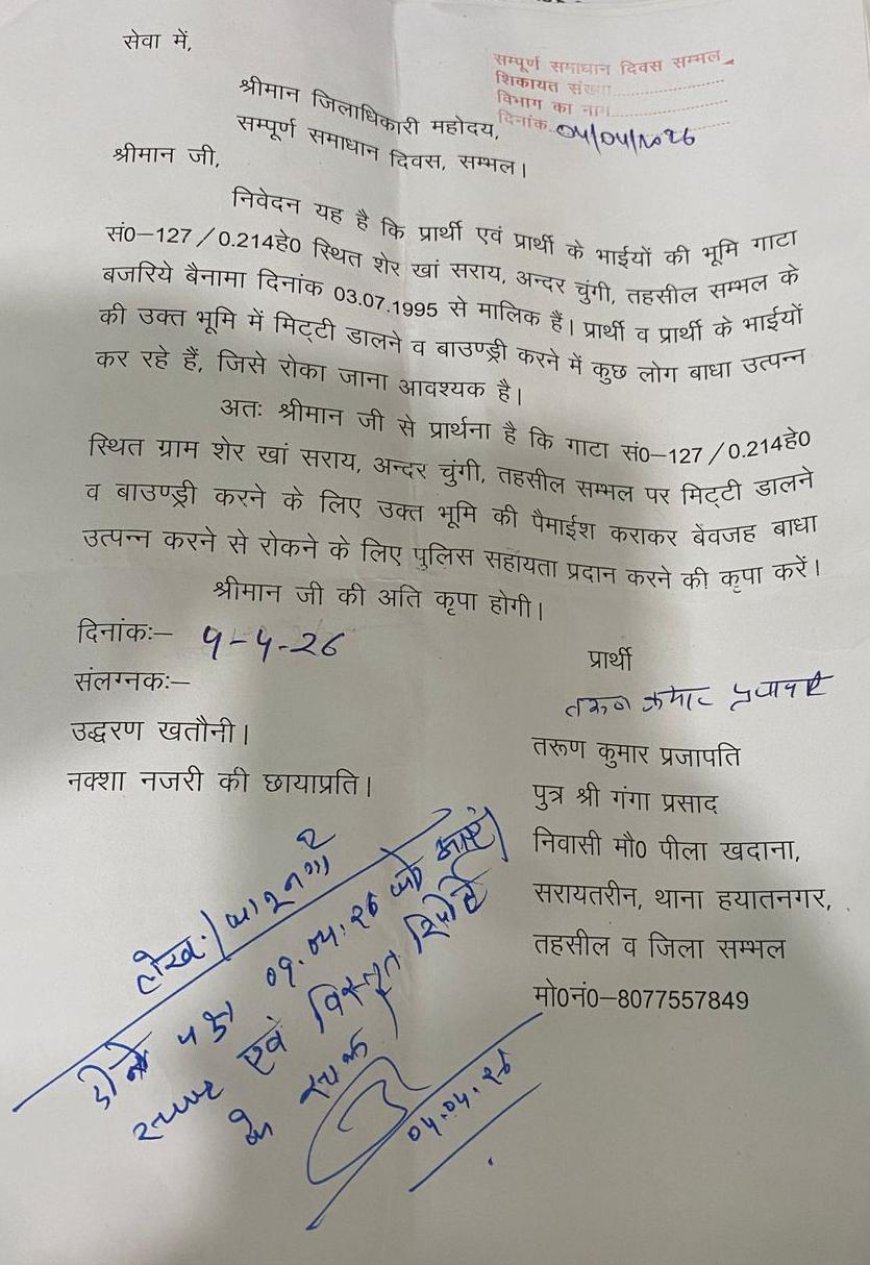 सेवा में,
सम्पूर्ण समाधान दिवस सम्भल
शिकायत संख्या
विभाग का नाम
दिनांक 04/04/2026
श्रीमान जिलाधिकारी महोदय,
सम्पूर्ण समाधान दिवस, सम्भल।
श्रीमान जी,
निवेदन यह है कि प्रार्थी एवं प्रार्थी के भाईयों की भूमि गाटा
सं0–127/0.214हे0 स्थित शेर खां सराय, अन्दर चुंगी, तहसील सम्भल के
बजरिये बैनामा दिनांक 03.07.1995 से मालिक हैं। प्रार्थी व प्रार्थी के भाईयों
की उक्त भूमि में मिट्टी डालने व बाउण्ड्री करने में कुछ लोग बाधा उत्पन्न
कर रहे हैं, जिसे रोका जाना आवश्यक है।
अतः श्रीमान जी से प्रार्थना है कि गाटा सं0–127/0.214हे0
स्थित ग्राम शेर खां सराय, अन्दर चुंगी, तहसील सम्भल पर मिट्टी डालने
व बाउण्ड्री करने के लिए उक्त भूमि की पैमाईश कराकर बेवजह बाधा
उत्पन्न करने से रोकने के लिए पुलिस सहायता प्रदान करने की कृपा करें।
श्रीमान जी की अति कृपा होगी।
दिनांकः– -4-26
संलग्नकः–
उद्धरण खतौनी।
नक्शा नजरी की छायाप्रति।
प्रार्थी
तरूण कुमार प्रजापति
तरूण कुमार प्रजापति
पुत्र श्री गंगा प्रसाद
निवासी मौ0 पीला खदाना,
सरायतरीन, थाना हयातनगर,
तहसील व जिला सम्भल
मो0नं0–8077557849
दोनों पक्ष 09.04.26 को
एवं विस्तृत रिपोर्ट
के साथ
04.04.26